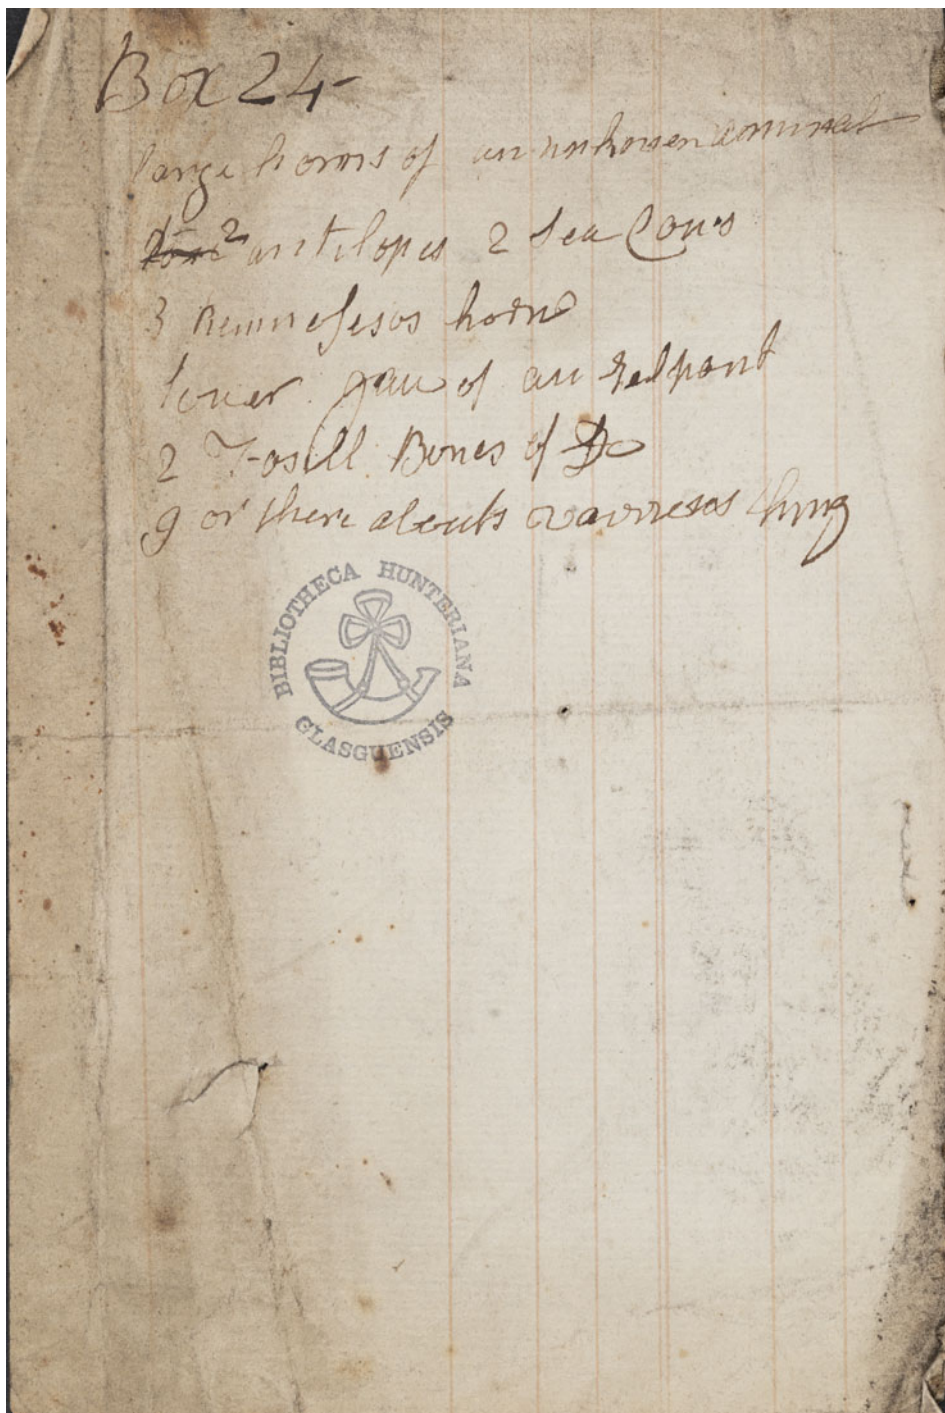 Box 24
large horns of an unknowen animal
2 antilopes 2 Sea Cows
3 Reinnosesos horns
lower jaw of an Relpant
2 Fosill Bones of Do
9 or there abouts varriesos thing
BIBLIOTHECA HUNTERIANA
GLASGUENSIS